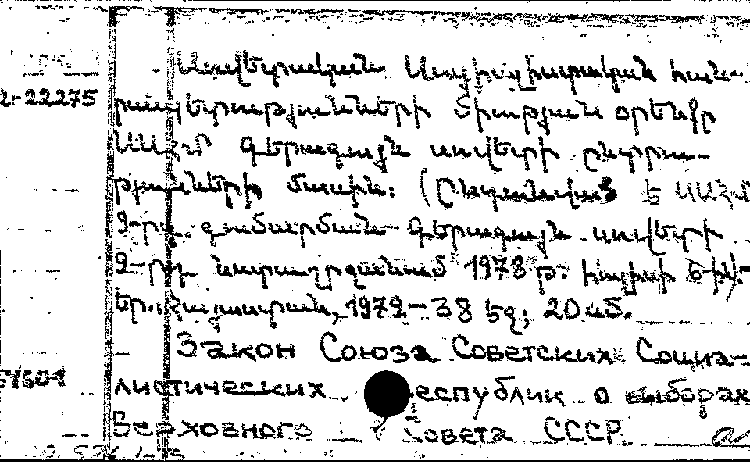 Սովետական Սոցիալիստական հան-
2-22275 րապետությունների Միության օրենքը
ՍՍՀՄ Գերագույն սովետի ընտրու-
թյունների մասին: (Ընդունված է ՍՍՀՄ
9-րդ գումարման Գերագույն սովետի
9-րդ նստաշրջանում 1978 թ. հուլիսի 6-ին
Եր., Հայաստան, 1979 - 38 էջ; 20 սմ.
Закон Союза Советских Социа-
листических Республик о выборах
Верховного Совета СССР.